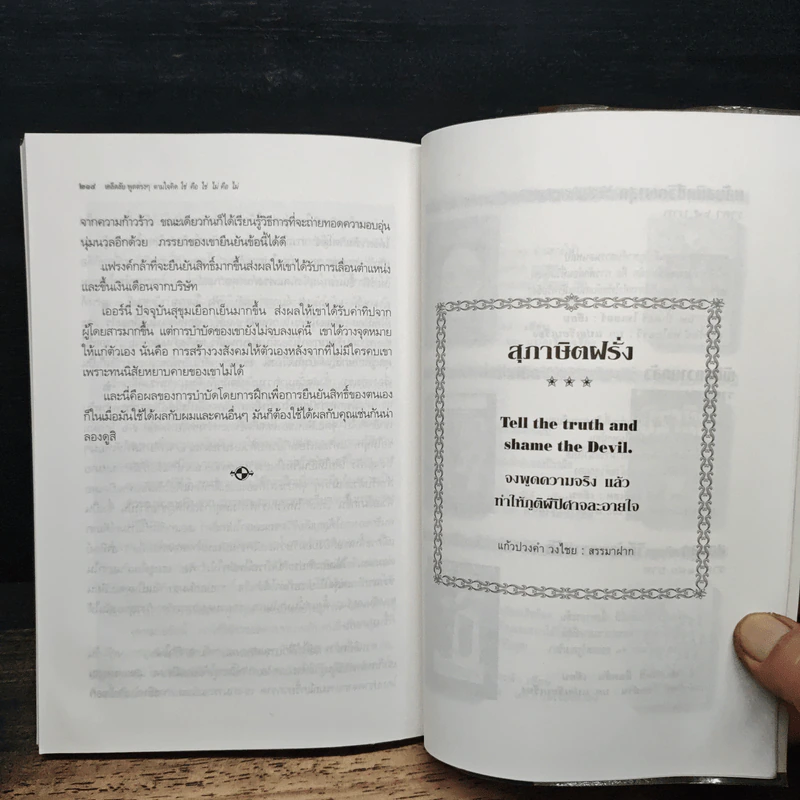 ๒๑๙ เคล็ดลับ พูดตรงๆ ตามใจคิด ใช่ คือ ใช่ ไม่ คือ ไม่
จากความก้าวร้าว ขณะเดียวกันก็ได้เรียนรู้วิธีการที่จะถ่ายทอดความอบอุ่น
นุ่มนวลอีกด้วย ภรรยาของเขายืนยันข้อนี้ได้ดี
แฟรงค์กล้าที่จะยืนยันสิทธิ์มากขึ้นส่งผลให้เขาได้รับการเลื่อนตำแหน่ง
และขึ้นเงินเดือนจากบริษัท
เออร์นี่ ปัจจุบันสุขุมเยือกเย็นมากขึ้น ส่งผลให้เขาได้รับค่าทิปจาก
ผู้โดยสารมากขึ้น แต่การบำบัดของเขายังไม่จบลงแค่นี้ เขาได้วางจุดหมาย
ให้แก่ตัวเอง นั่นคือ การสร้างวงสังคมให้ตัวเองหลังจากที่ไม่มีใครคบเขา
เพราะทนนิสัยหยาบคายของเขาไม่ได้
และนี่คือผลของการบำบัดโดยการฝึกเพื่อการยืนยันสิทธิ์ของตนเอง
ก็ในเมื่อมันใช้ได้ผลกับผมและคนอื่นๆ มันก็ต้องใช้ได้ผลกับคุณเช่นกันน่า
ลองดูสิ
สุภาษิตฝรั่ง
Tell the truth and
shame the Devil.
จงพูดความจริง แล้ว
ทำให้ภูติผีปีศาจละอายใจ
แก้วปวงคำ วงไชย : สรรมาฝาก